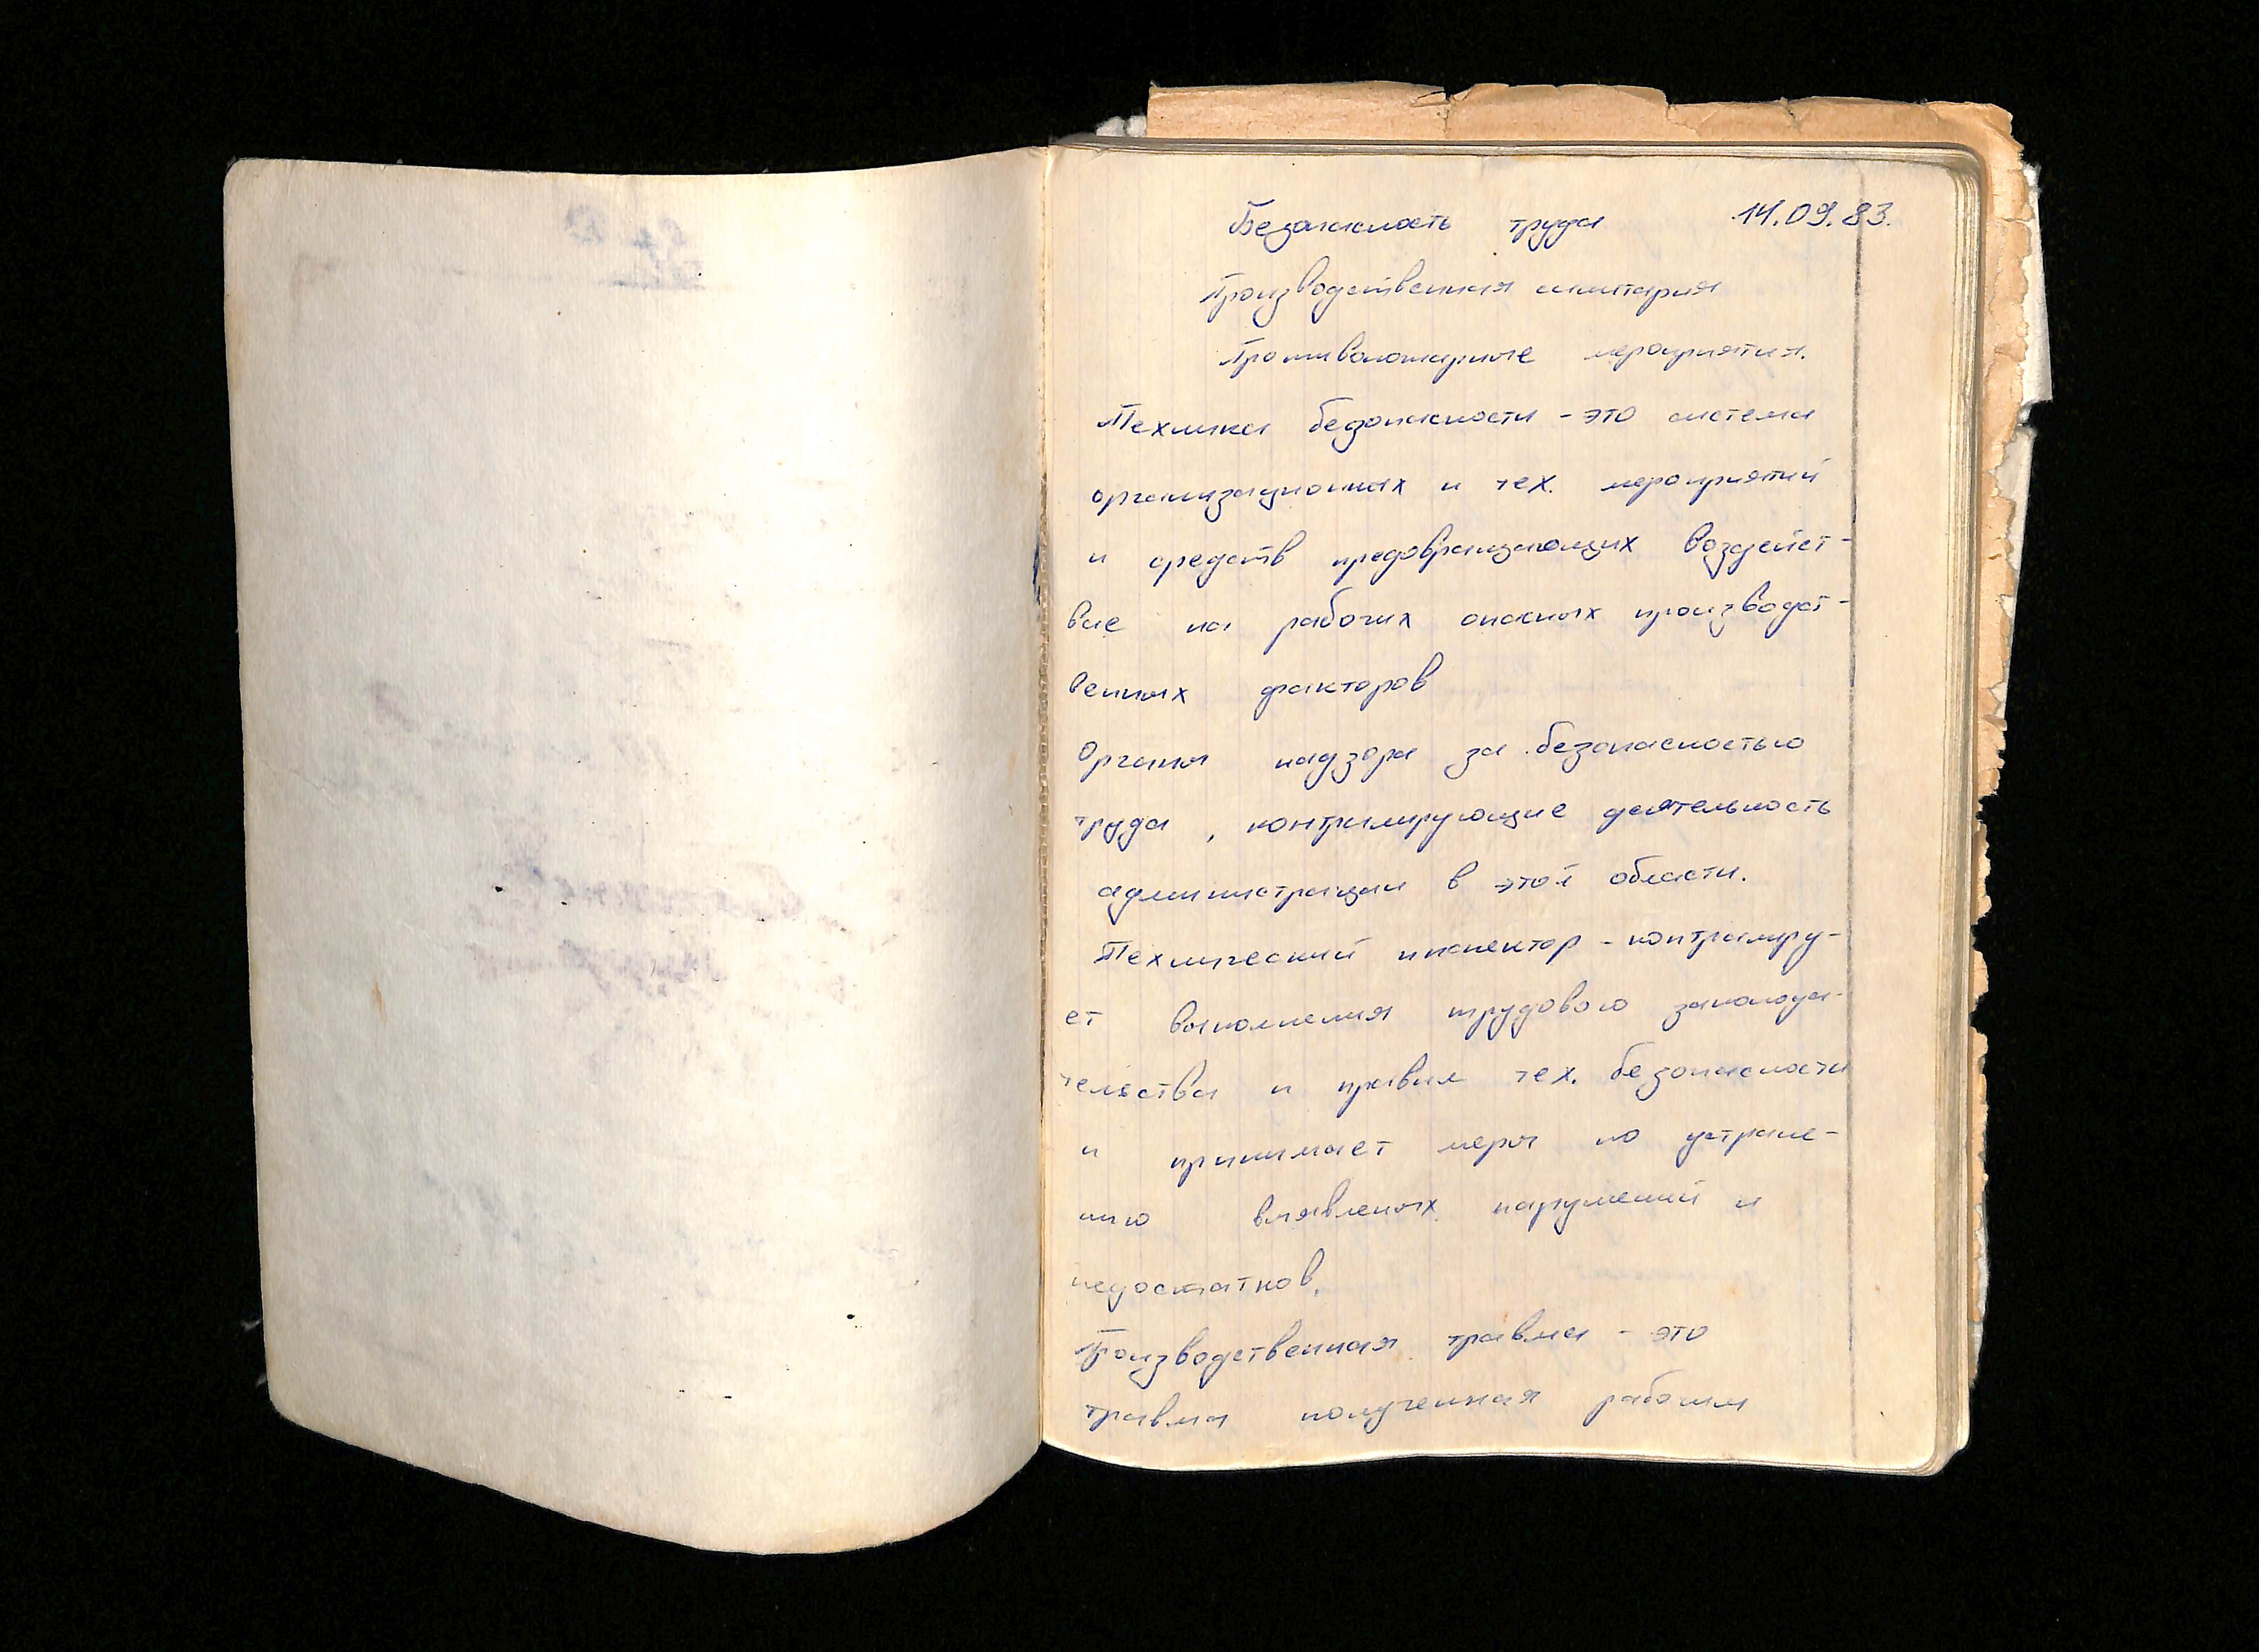 Безопасность труда 14.09.83.
Производственная санитария
Противопожарные мероприятия.
Техника безопасности - это система
организационных и тех. мероприятий
и средств предовращающих воздейст-
вие на рабочих опасных производст-
венных факторов
Органы надзора за безопасностью
труда, контролирующие деятельность
администрации в этой области.
Технический инспектор - контролиру-
ет выполнения трудового законода-
тельства и правил тех. безопасности
и принимает меры по устране-
нию выявленых нарушений и
недостатков.
Производственная травма - это
травма полученная рабочим